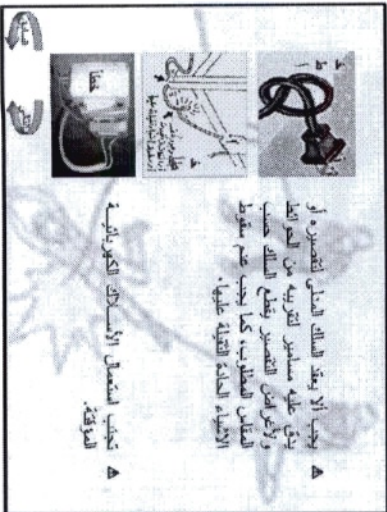 يجب ألا يعقد السلك المدلى لتقصيره أو
يدق عليه مسامير لتقريبه من الحوائط
ولأغراض التقصير يقطع السلك حسب
المقاس المطلوب، كما يجب عدم سقوط
الأشياء الحادة الثقيلة عليها.
تجنب استعمال الأسلاك الكهربائية
المؤقتة.
خطأ
خطأ